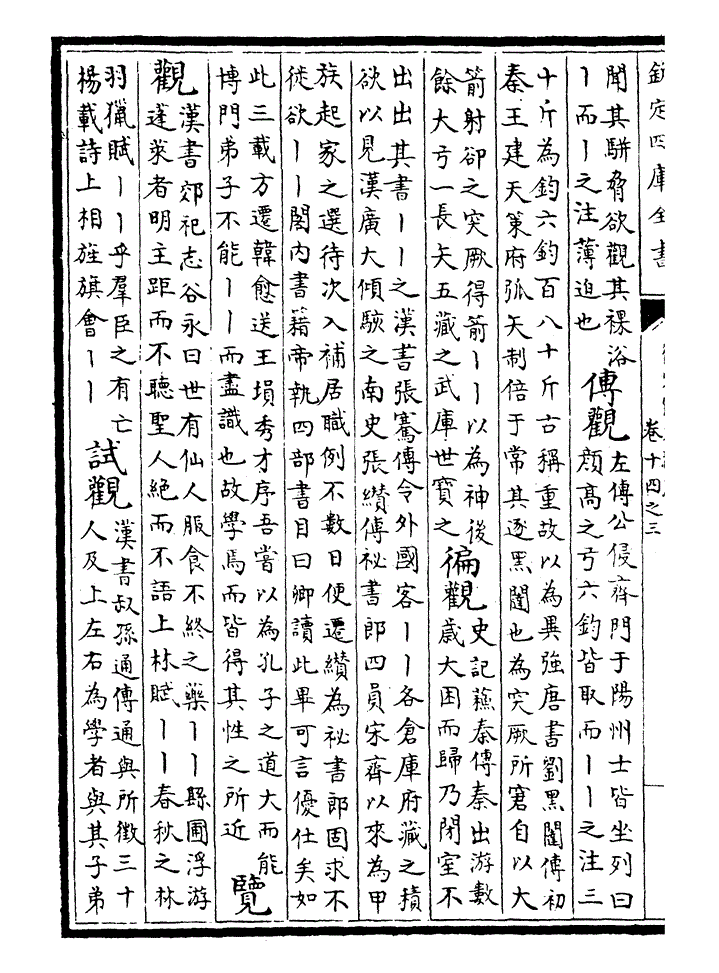 欽定四庫全書
卷十四之三
聞其駢脅欲觀其裸浴
丨而丨之注薄迫也
傳觀
左傳公侵齊門于陽州士皆坐列曰
顔高之弓六鈞皆取而丨丨之注三
十斤為鈞六鈞百八十斤古稱重故以為異強唐書劉黑闥傳初
秦王建天策府弧矢制倍于常其逐黑闥也為突厥所窘自以大
箭射卻之突厥得箭丨丨以為神後
餘大弓一長矢五藏之武庫世寶之
徧觀
史記蘇秦傳秦出游數
歲大困而歸乃閉室不
出出其書丨丨之漢書張騫傳令外國客丨丨各倉庫府藏之積
欲以見漢廣大傾駭之南史張纘傳祕書郎四員宋齊以來為甲
族起家之選待次入補居職例不數日便遷纘為祕書郎固求不
徙欲丨丨閣内書籍帝執四部書目曰卿讀此畢可言優仕矣如
此三載方遷韓愈送王塤秀才序吾嘗以為孔子之道大而能
博門弟子不能丨丨而盡識也故學焉而皆得其性之所近
覽
觀
漢書郊祀志谷永曰世有仙人服食不終之藥丨丨縣圃浮游
蓬萊者明主距而不聽聖人絶而不語上林賦丨丨春秋之林
羽獵賦丨丨乎羣臣之有亡
楊載詩上相旌旗會丨丨
試觀
漢書叔孫通傳通與所徵三十
人及上左右為學者與其子弟